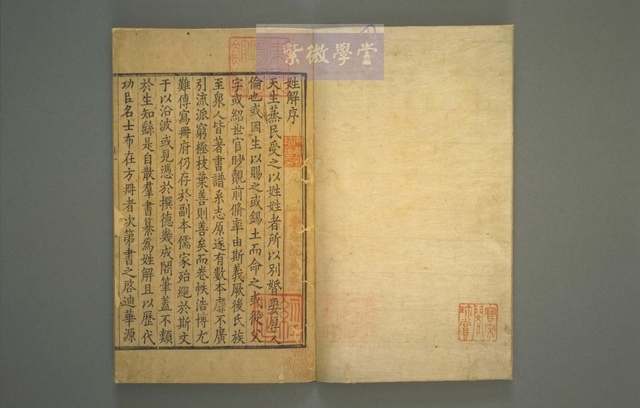 紫微學堂
姓解序
天生蒸民受之以姓姓者所以別婚娶厚人
倫也或因生以賜之或錫土而命之或從父
字或紹世官眇覿前脩率由斯義厥後氏族
至衆人皆著書譜系志原遂有數本靡不廣
引流派窮極枝葉善則善矣而卷帙浩博尤
難傳寫冊府仍存於副本儒家殆絕於斯文
于以沿波或見憑於撰德幾成閣筆蓋不類
於生知繇是自散羣書纂為姓解且以歷代
功臣名士布在方冊者次第書之啓迪華源